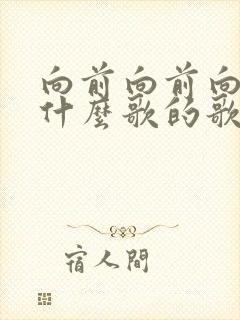 向前向前向
什麼歌的歌
宿人間